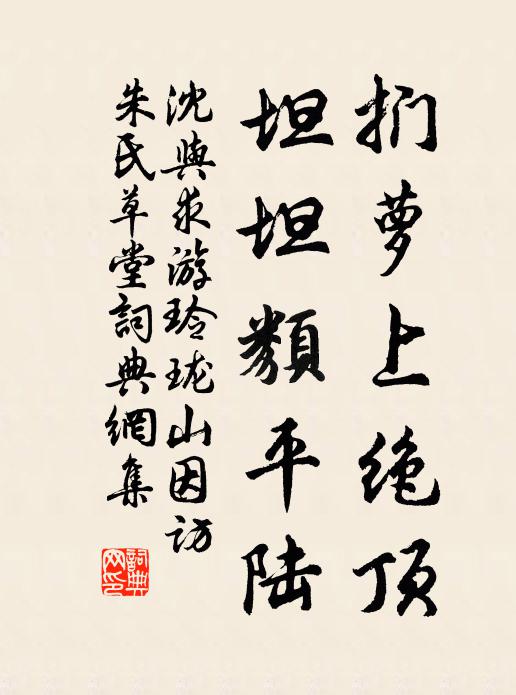 扪萝上绝顶
坦坦类平陆
沈與求游玲珑山因访
朱氏草堂詞典網集
詞典网印